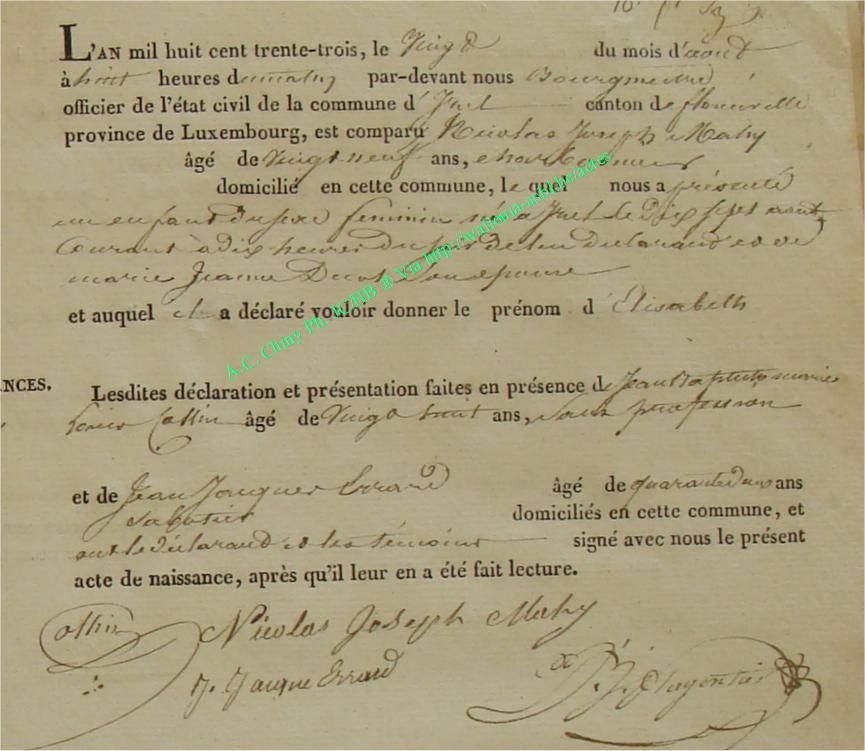 L'AN mil huit cent trente-trois, le Vingt du mois d'aout
à huit heures du matin par-devant nous Bourgmestre
officier de l'état civil de la commune d' canton de florenville
province de Luxembourg, est comparu Nicolas Joseph Mahy
âgé de Vingt neuf ans,
domicilié en cette commune, le quel nous a présenté
un enfant du sexe feminin né a le dix sept aout
Courant à dix heures du soir de lui declarant et de
marie Jeanne son epouse
et auquel il a déclaré vouloir donner le prénom d' Elisabeth
A.C. Chiny Ph. ICHB ® Via http://wallonia-asbl.be/actes
NCES.
Lesdites déclaration et présentation faites en présence de Jean Baptiste
Collin âgé de Vingt huit ans, sans profession
et de Jean Jacques Errard âgé de quarante deux ans
Sabotier domiciliés en cette commune, et
ont le déclarant et les témoins signé avec nous le présent
acte de naissance, après qu'il leur en a été fait lecture.
Collin Nicolas Joseph Mahy
J. Jacque Errard